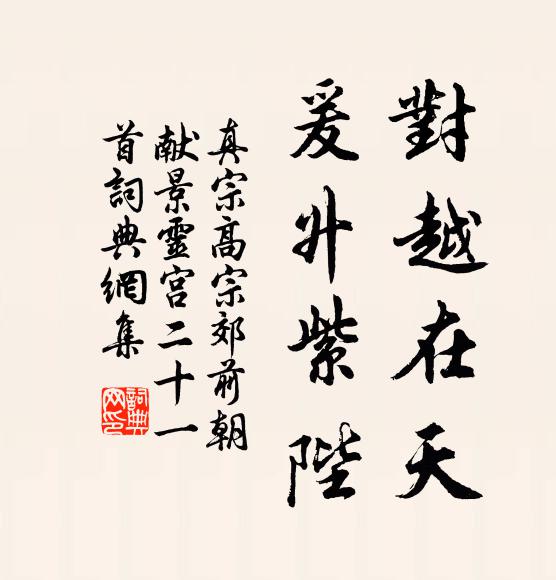 對越在天
爰升紫陛
真宗高宗郊前朝
献景靈宮二十一
首詞典網集
詞典網印